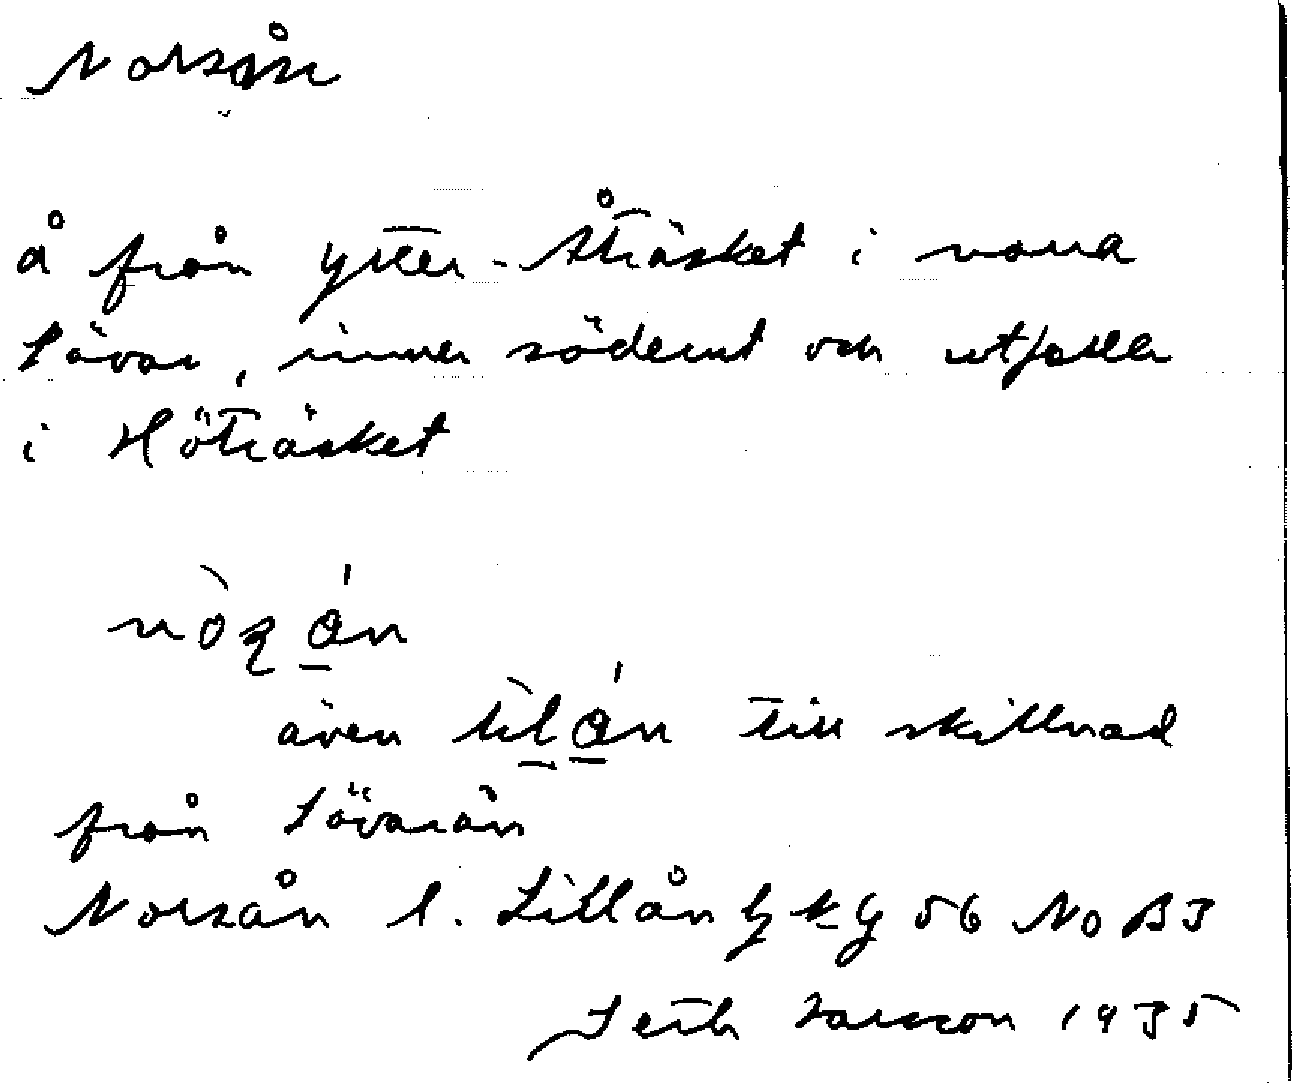 Norsån
å från Ytter-Åträsket i norra
Sävar, rinner söderut och utfaller
i Höträsket
även till skillnad
från Sävarån
Norsån l. Lillån GKG 56 No B3
Seth Larsson 1935